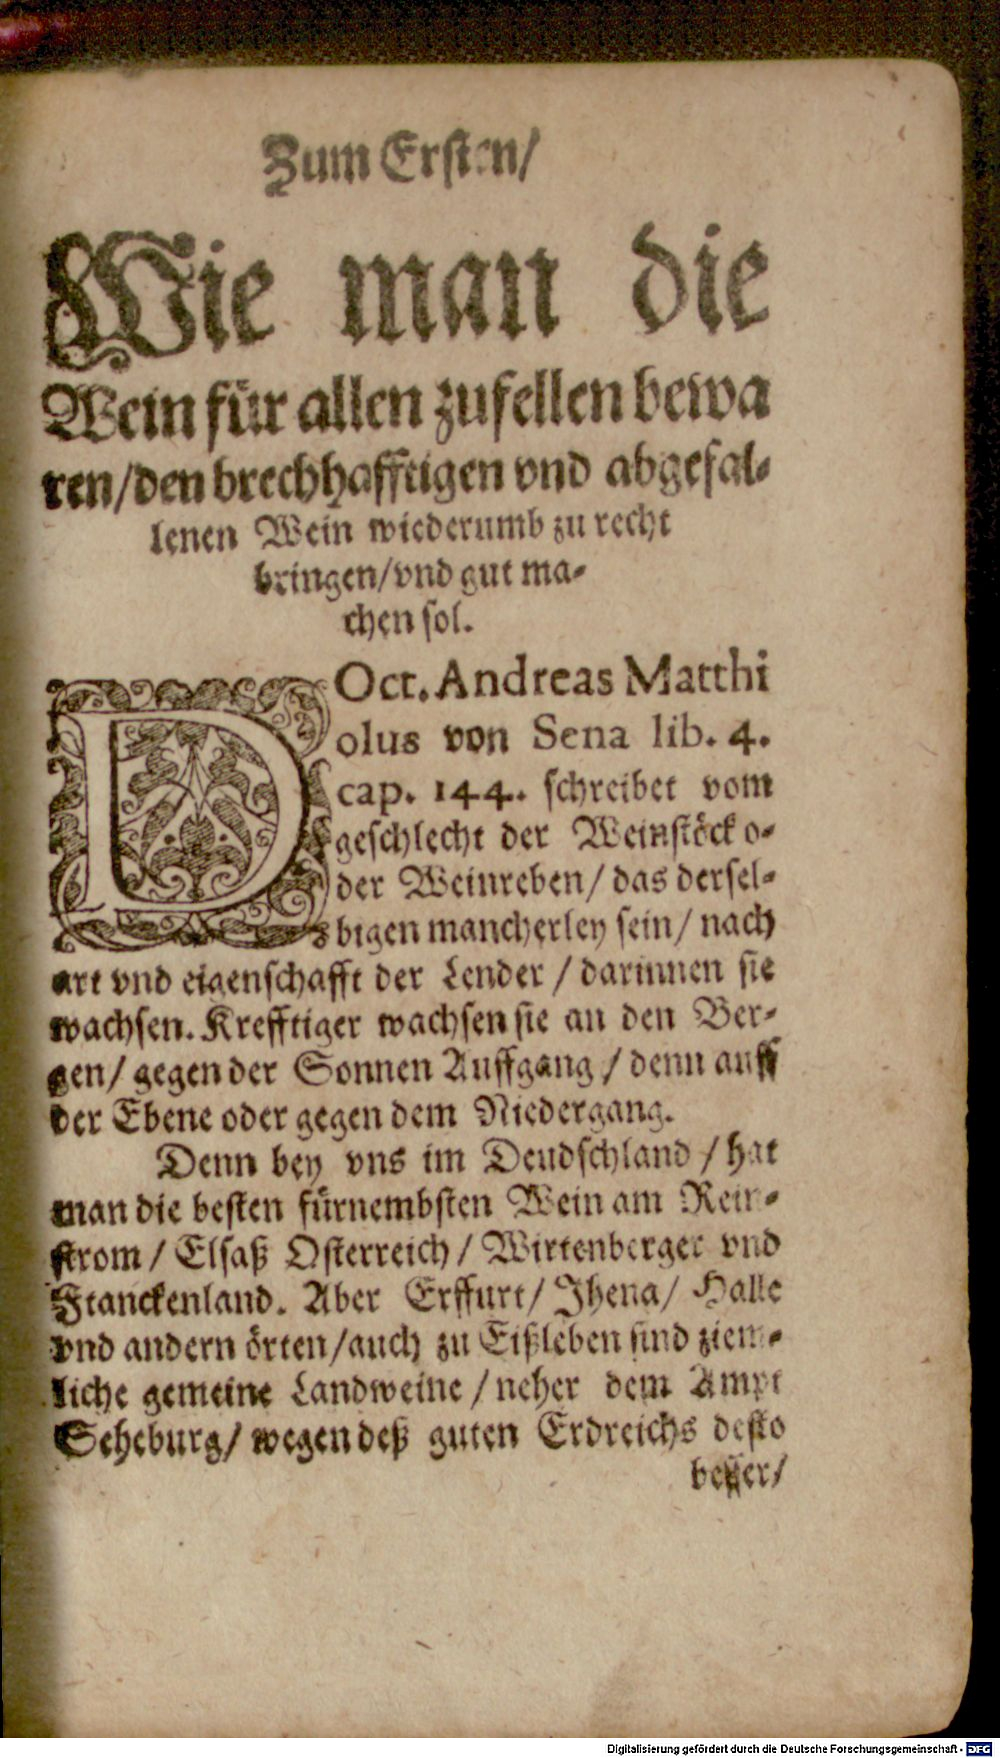 Zum Ersten/
Wie man die
Wein für allen zufellen bewa
ren/den brechhafftigen vnd abgefal-
lenen Wein wiederumb zu recht
bringen/vnd gut ma-
chen sol.
DOct. Andreas Matthi
olus von Sena lib. 4.
cap. 144. schreibet vom
geschlecht der Weinstöck o-
der Weinreben/ das dersel-
bigen mancherley sein/ nach
art vnd eigenschafft der Lender / darinnen sie
wachsen. Krefftiger wachsen sie an den Ber-
gen/ gegen der Sonnen Auffgang / denn auff
der Ebene oder gegen dem Niedergang.
Denn bey vns im Deudschland / hat
man die besten fürnembsten Wein am Rein-
strom/ Elsaß Osterreich/ Wirtenberger vnd
Franckenland. Aber Erffurt/ Jhena/ Halle
vnd andern örten/auch zu Eißleben sind ziem-
liche gemeine Landweine / neher dem Ampt
Seheburg/ wegen deß guten Erdreichs desto
besser/
Digitalisierung gefördert durch die Deutsche Forschungsgemeinschaft - DFG